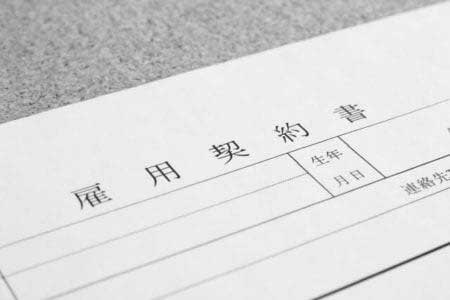 雇用契約書
生年
月日
連絡先